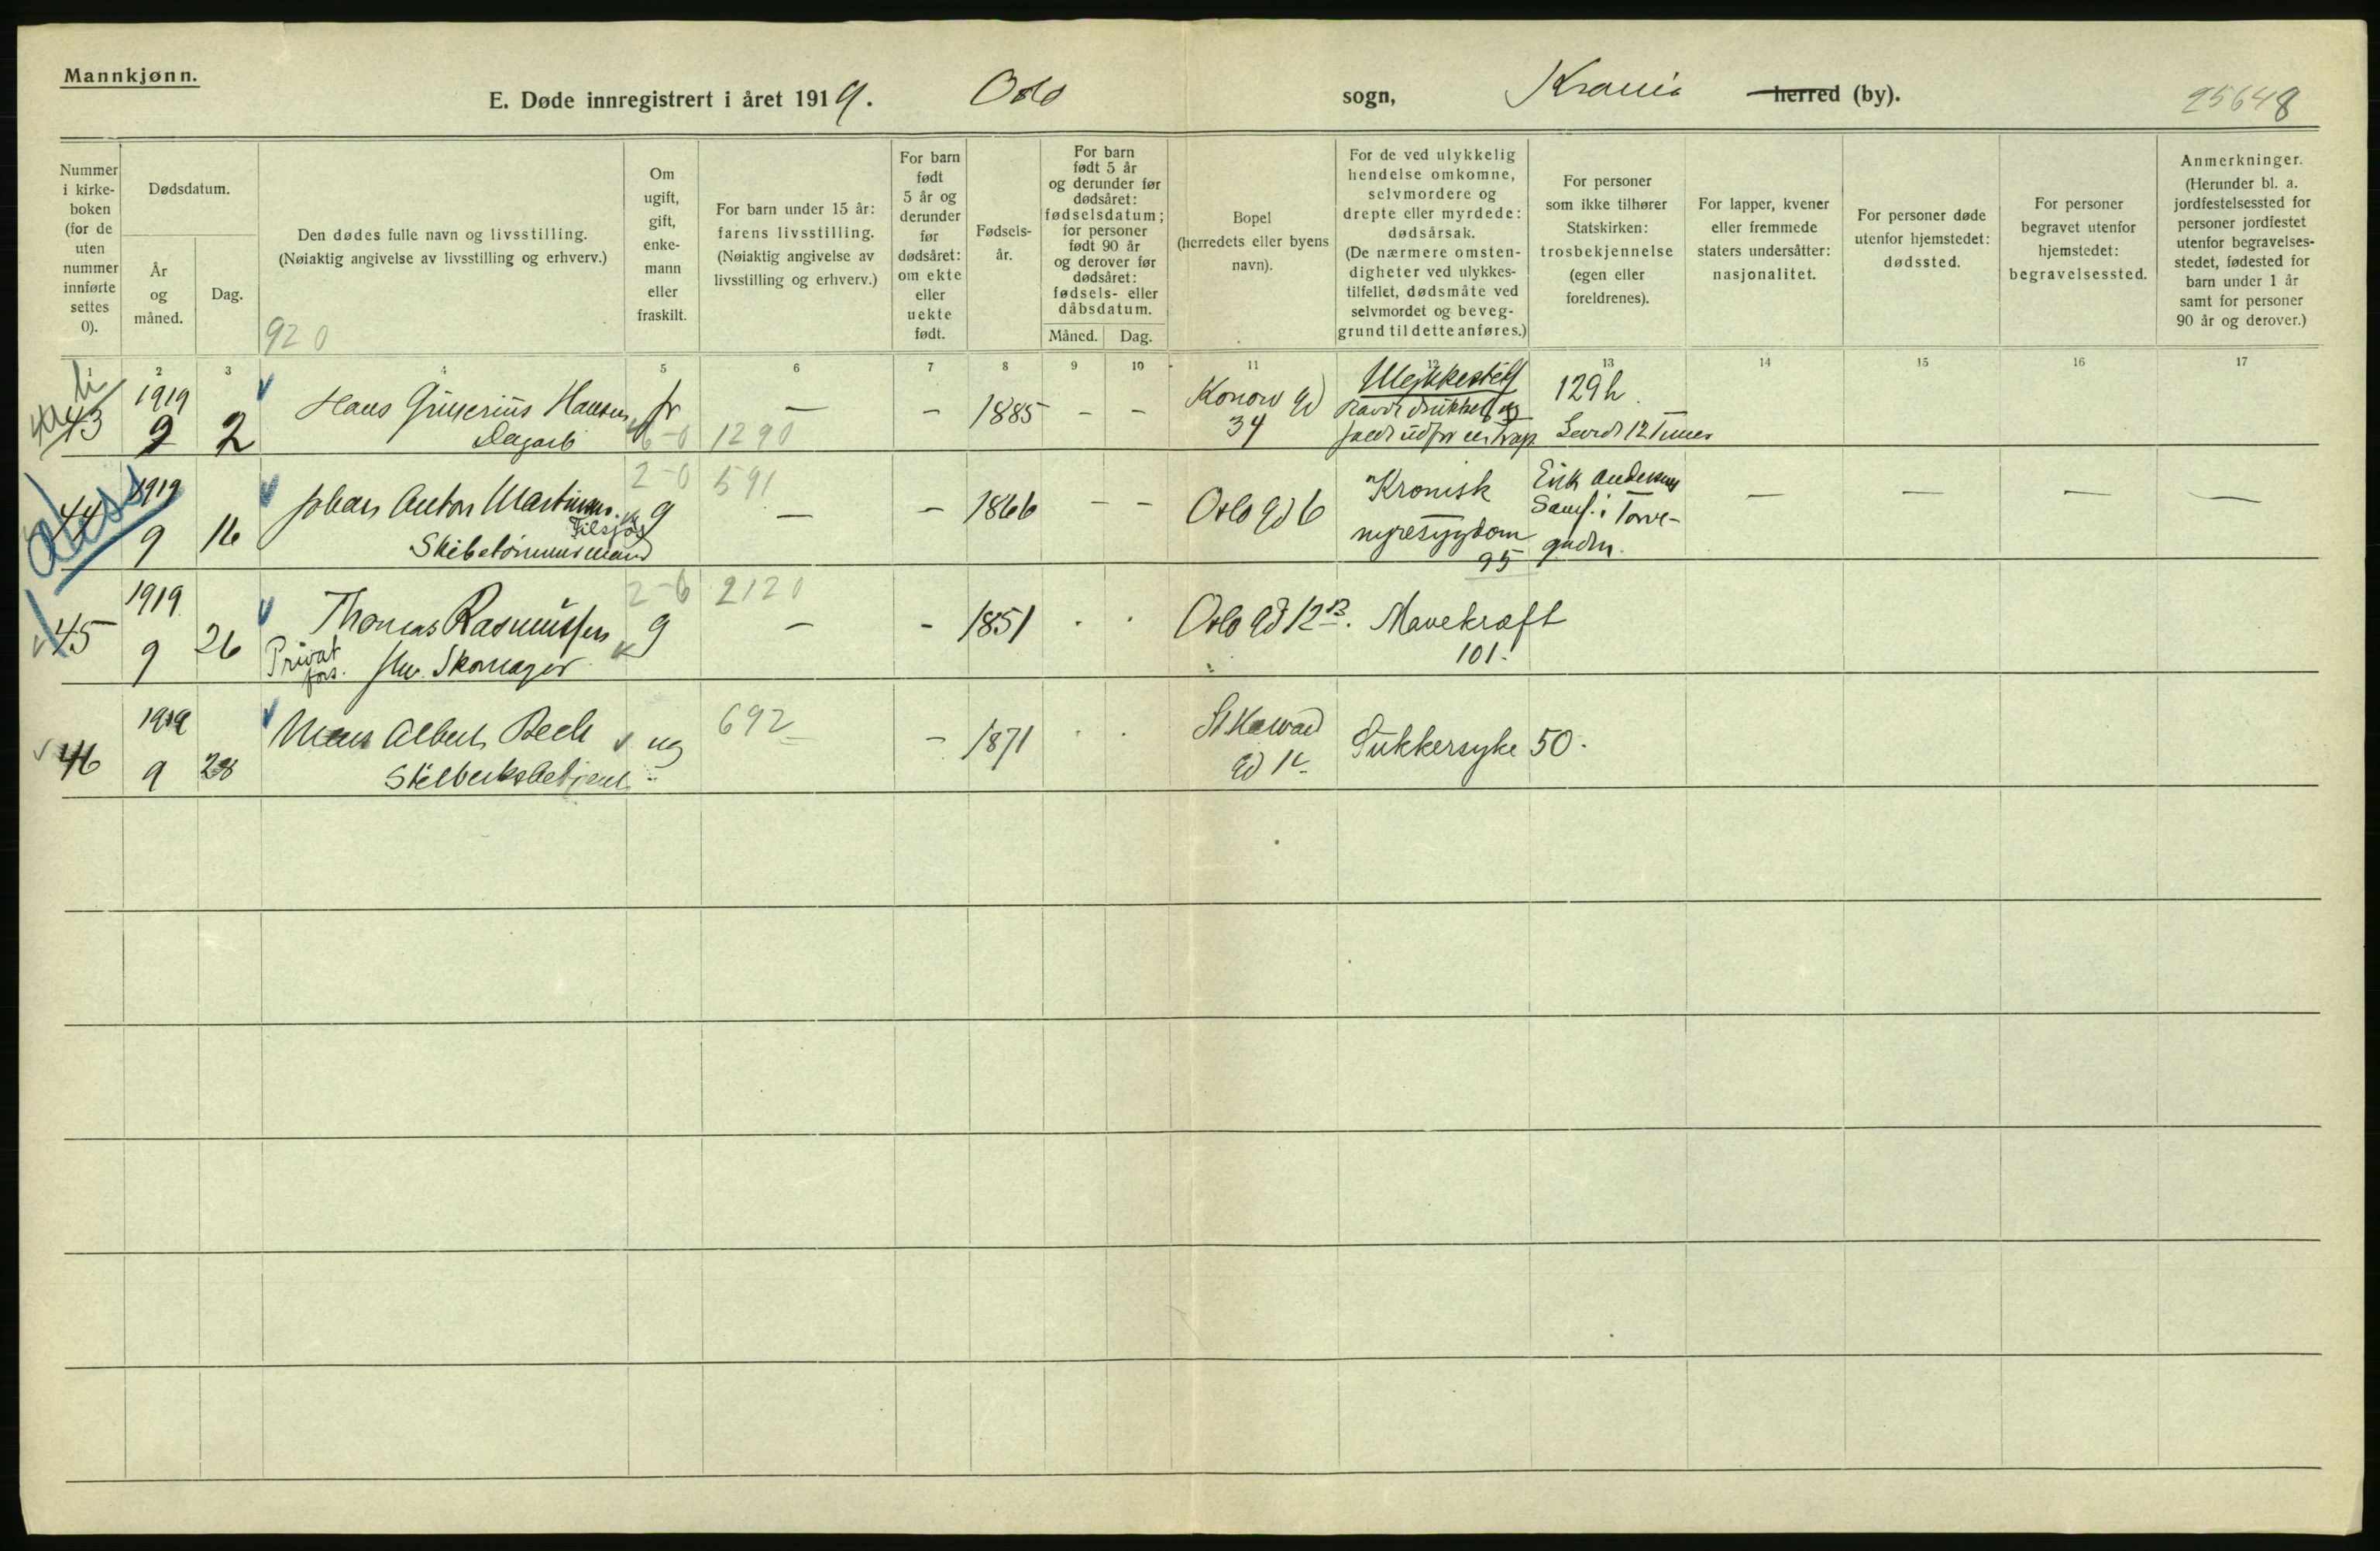 Mannkjønn.
E. Døde innregistrert i året 1919. Oslo sogn, Krania herred (by). 25648
Nummer i kirke-boken (for de uten nummer innførte settes 0).
Dødsdatum.
År og måned.
Dag.
Den dødes fulle navn og livsstilling.
(Nøiaktig angivelse av livsstilling og erhverv.)
920
Om ugift, gift, enke-mann eller fraskilt.
For barn under 15 år: farens livsstilling.
(Nøiaktig angivelse av livsstilling og erhverv.)
For barn født 5 år og derunder før dødsåret: om ekte eller uekte født.
Fødsels-år.
For barn født 5 år og derunder før dødsåret: fødselsdatum; for personer født 90 år og derover før dødsåret: fødsels- eller dåbsdatum.
Måned. Dag.
Bopel (herredets eller byens navn).
For de ved ulykkelig hendelse omkomne, selvmordere og drepte eller myrdede: dødsårsak.
(De nærmere omsten-digheter ved ulykkes-tilfellet, dødsmåte ved selvmordet og beveg-grund til dette anføres.)
For personer som ikke tilhører Statskirken: trosbekjennelse (egen eller foreldrenes).
For lapper, kvener eller fremmede staters undersåtter: nasjonalitet.
For personer døde utenfor hjemstedet: dødssted.
For personer begravet utenfor hjemstedet: begravelsessted.
Anmerkninger.
(Herunder bl. a. jordfestelsessted for personer jordfestet utenfor begravelses-stedet, fødested for barn under 1 år samt for personer 90 år og derover.)
1 2 3 4 5 6 7 8 9 10 11 12 13 14 15 16 17
43 1919 9 2 Hans Hansen fr — — 1885 — — Konow Gd 34 129 h.
Dagarb 6-0 1290 faldt ud for en Trap. Levde 12 Timer
44 1919 9 16 Johan Anton Martinsen g 2-0 591 — — 1866 — — Oslo Gd 6 Kronisk nyresygdom 95 Erik Andersens Samf. i Torve-gaden. — — — —
Tilsjøs
Skibstømmermand
45 1919 9 26 Thomas Rasmussen g 2-6 2120 — — 1851 Oslo Gd 12 B. Mavekræft 101.
Privat fors. fhv. Skomager
46 1919 9 28 Albert Bech ug 692 — 1871 St Halvard Gd 1 Sukkersyke 50.